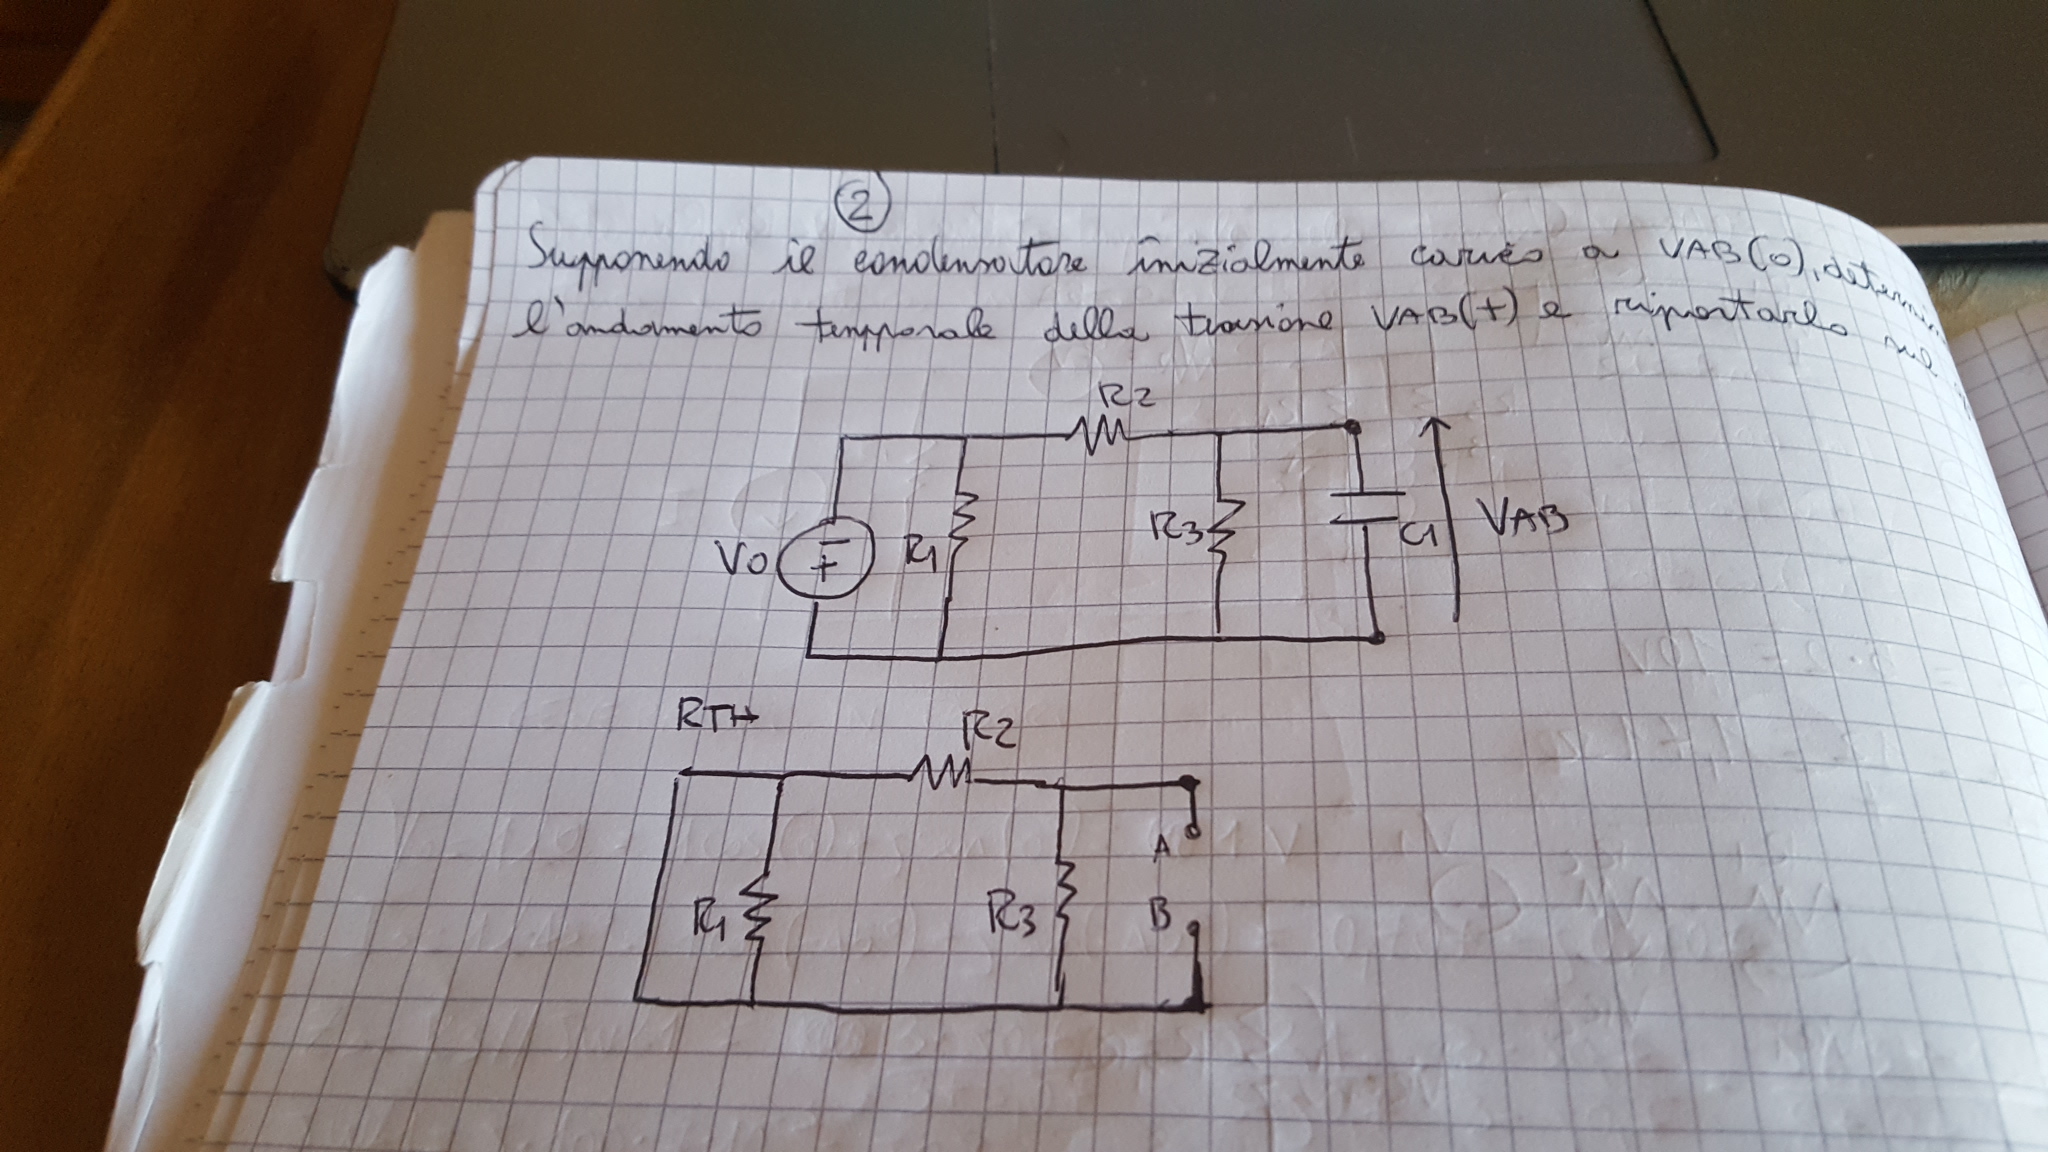 2
Supponendo il condensatore inizialmente carico a VAB(0), determin
l'andamento temporale della tensione VAB(t) e riportarlo sul
R2
V0
-
+
R1
R3
C1
VAB
RTH
R2
R1
R3
A
B